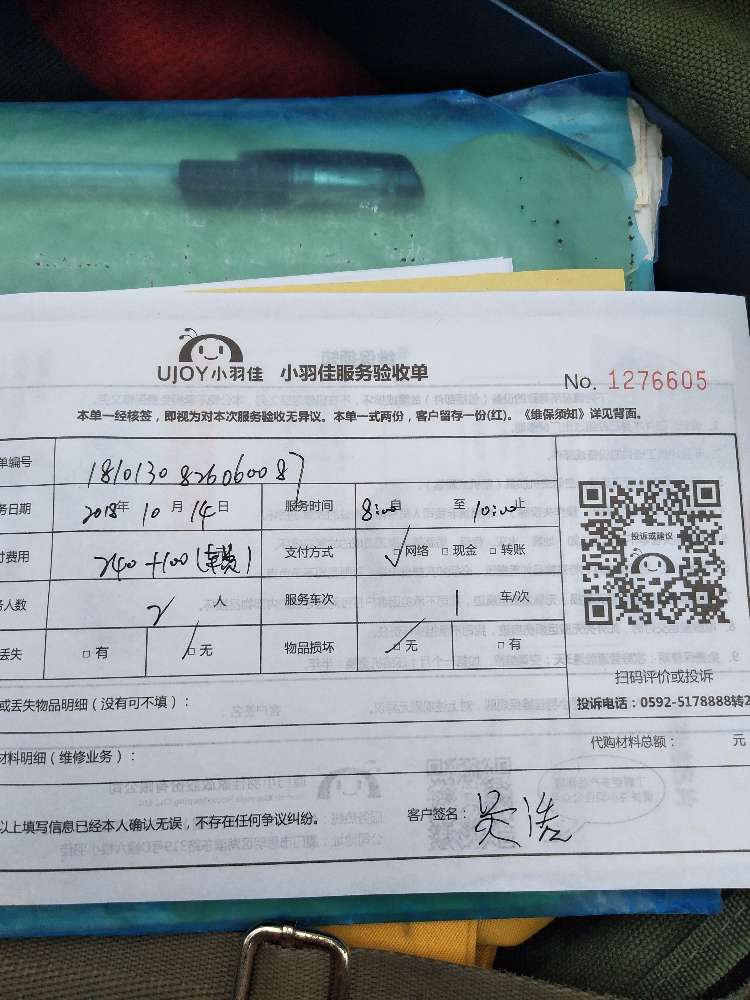 UJOY小羽佳 小羽佳服务验收单
No. 1276605
本单一经核签，即视为对本次服务验收无异议。本单一式两份，客户留存一份(红)。《维保须知》详见背面。
单编号 1810130826060087
务日期 2018年 10月 14日 服务时间 8:00自 至 10:00止
付费用 240+100(车费) 支付方式 □网络 □现金 □转账
务人数 2 人 服务车次 1 车/次
丢失 □有 □无 物品损坏 □无 □有
投诉或建议
扫码评价或投诉
投诉电话：0592-5178888转2
或丢失物品明细（没有可不填）：
材料明细（维修业务）： 代购材料总额： 元
以上填写信息已经本人确认无误，不存在任何争议纠纷。 客户签名：吴浩